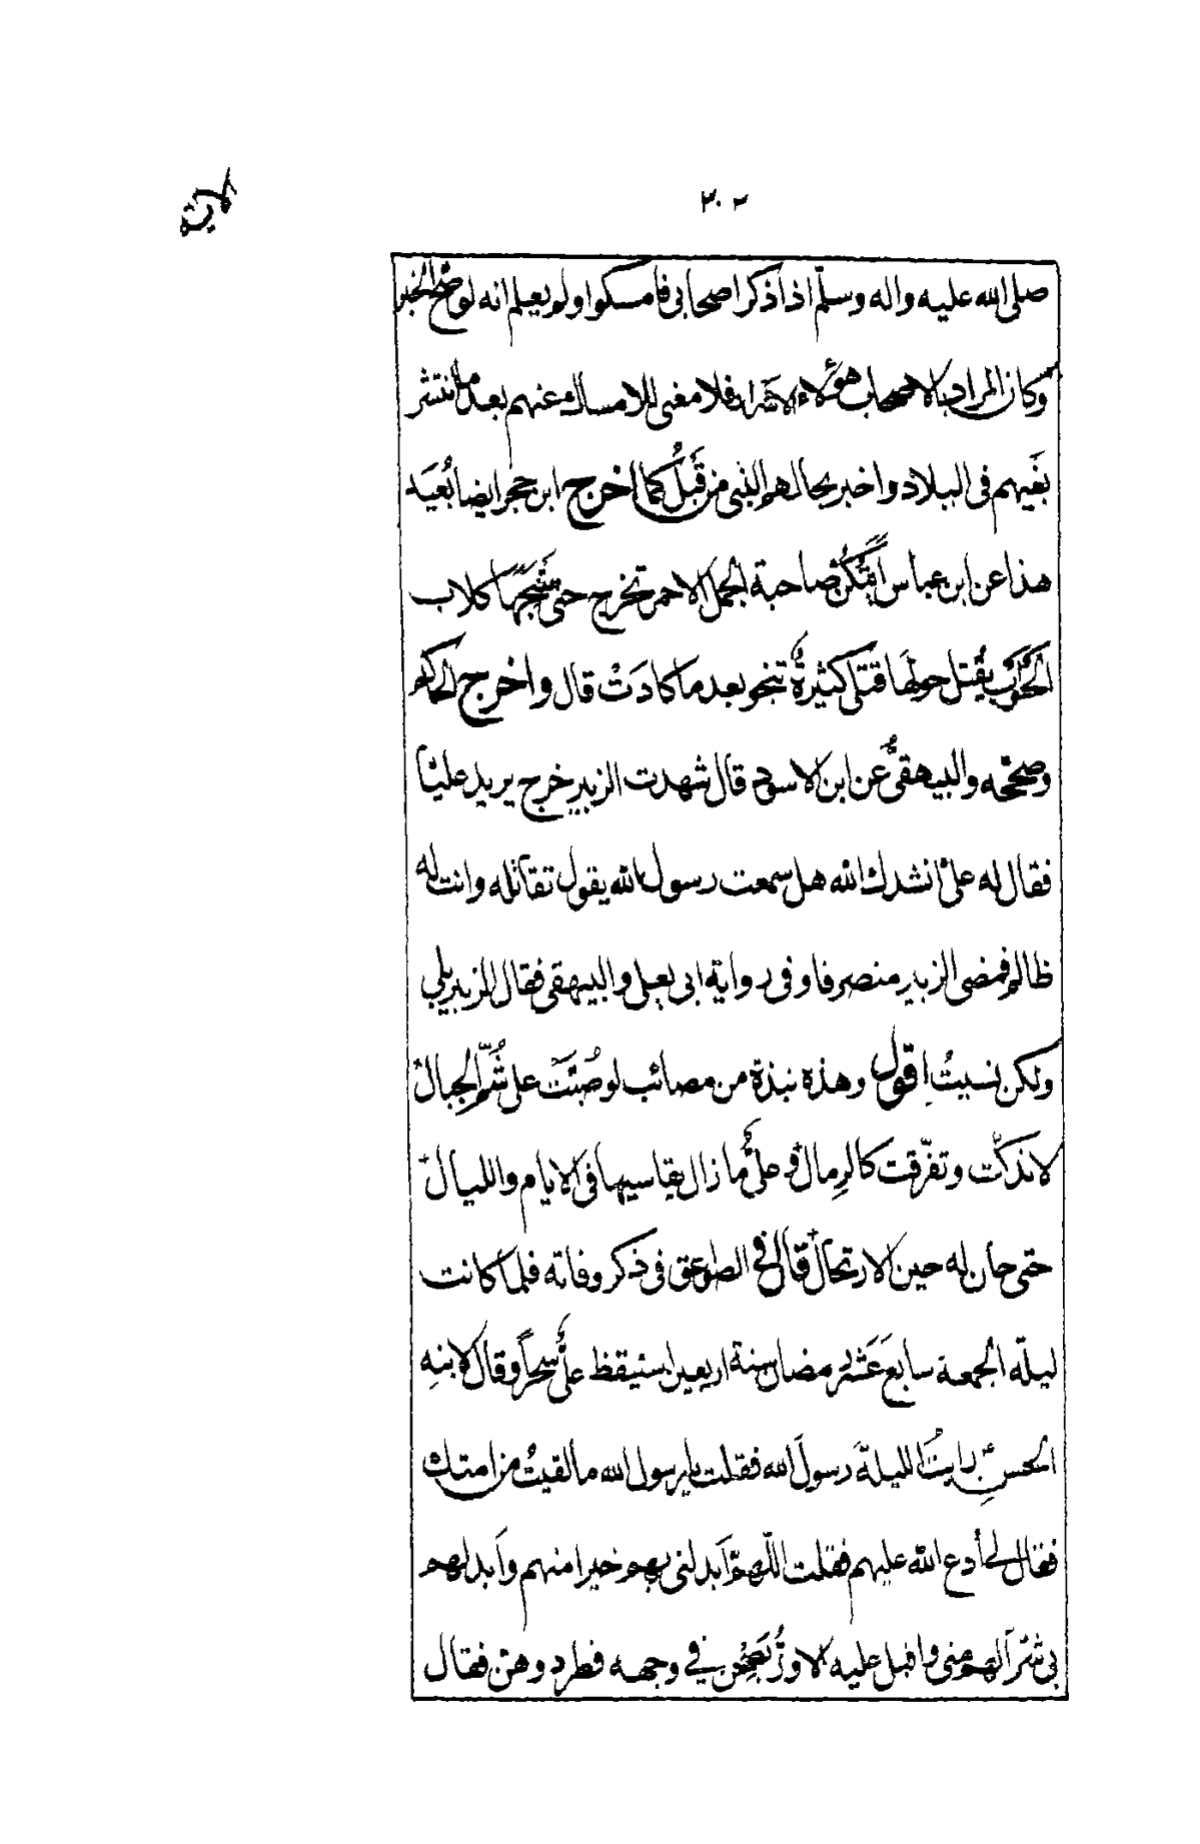 ٣٠٢
صلى الله عليه واله وسلّم اذا ذكر اصحابى فامسكوا ولم يعلم انه لو صحّ الخبر
وكان المراد بالاصحاب هؤلاء الاشرار فلا معنى للامساك عنهم بعد ما انتشر
بغيهم فى البلاد واخبر بحالهم النبى من قبلُ كما اخرج ابن حجر ايضا بُعَيد
هذا عن ابن عباس ايتكنّ صاحبة الجمل الاحمر تخرج حتى تنبحها كلاب
الحَوْأب يُقتل حولها قتلى كثيرةٌ تنجو بعد ما كادَتْ قال واخرج الحاكم
وصحّحه والبيهقىُّ عن ابن الاسود قال شهدت الزبير خرج يريد عليّا
فقال له علىٌّ انشدك الله هل سمعت رسول الله يقول تقاتله وانت له
ظالم فمضى الزبير منصرفا وفى رواية ابى يعلى والبيهقى فقال الزبير بلى
ولكن نسيتُ اقول وهذه نبذة من مصائب لو صُبّت على شُمّ الجبال
لاندكّت وتفرّقت كالرمال وعلىٌّ ما زال يقاسيها فى الايام والليال
حتى حان له حين الارتحال قال فى الصواعق فى ذكر وفاته فلما كانت
ليلة الجمعة سابعَ عَشَر رمضان سنة اربعين استيقظ علىٌّ سحراً وقال لابنه
الحسن رايتُ الليلةَ رسولَ الله فقلت يا رسول الله ما لقيتُ من امتك
فقال لى أدع الله عليهم فقلت اللّهمّ أبدلنى بهم خيرا منهم وأبدلهم
بى شرّاً لهم منى واقبل عليه الاوزُّ يصِحْن فى وجهه فطردوهنّ فقال